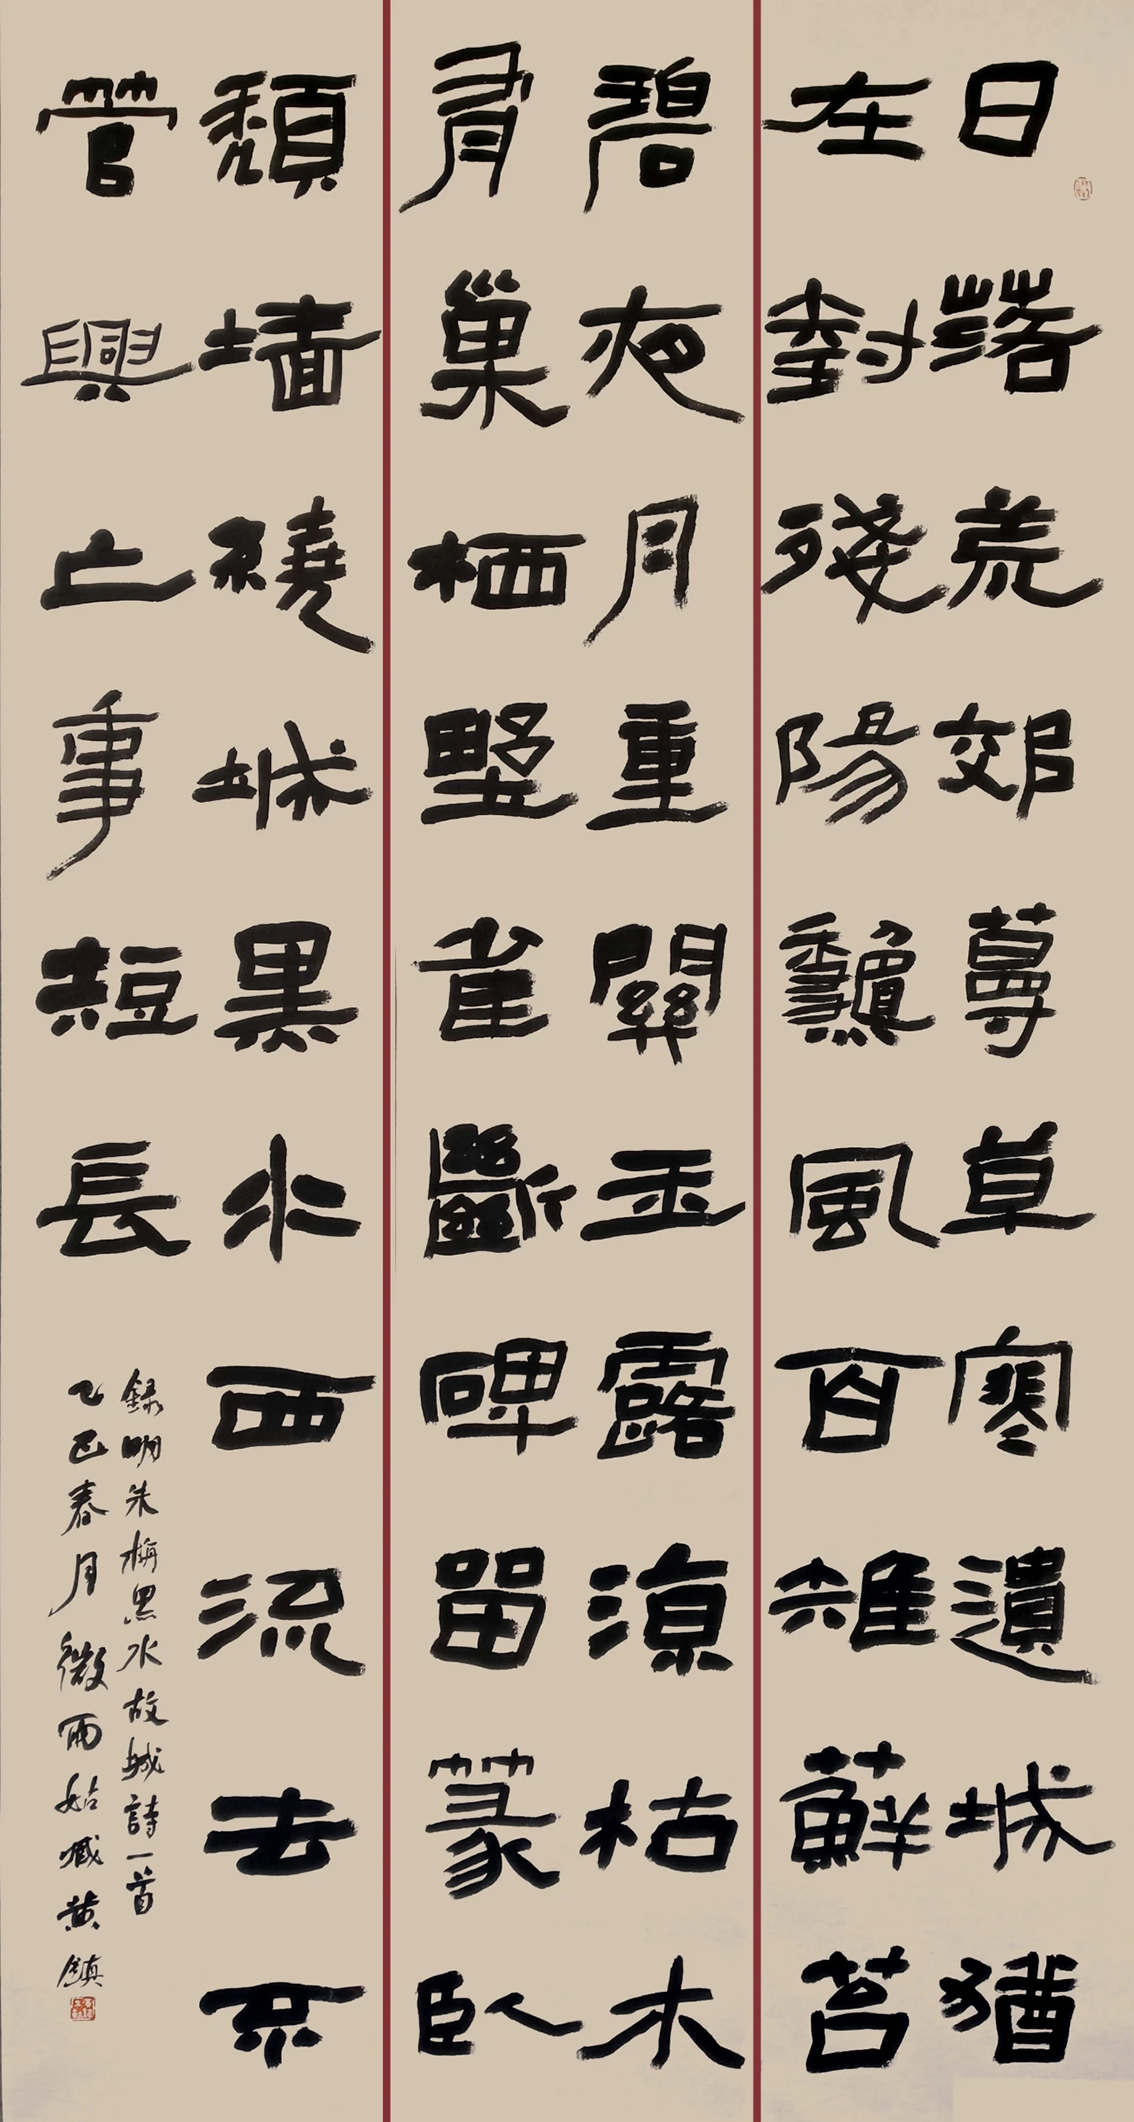 日落荒郊蔓草寒遺城猶
在對殘陽龝風百雉蘇苔
碧夜月重關玉露涼枯木
有巢栖墅雀斷碑留篆臥
頹墻繞城黑水西流去不
管興亡事短長
録明朱栴黑水故城詩一首
乙巳春月微雨姑臧黄鎮